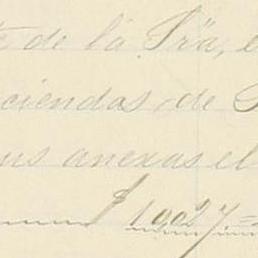 de la Sra,
ciendas de
us anexas el
$ 1902 7